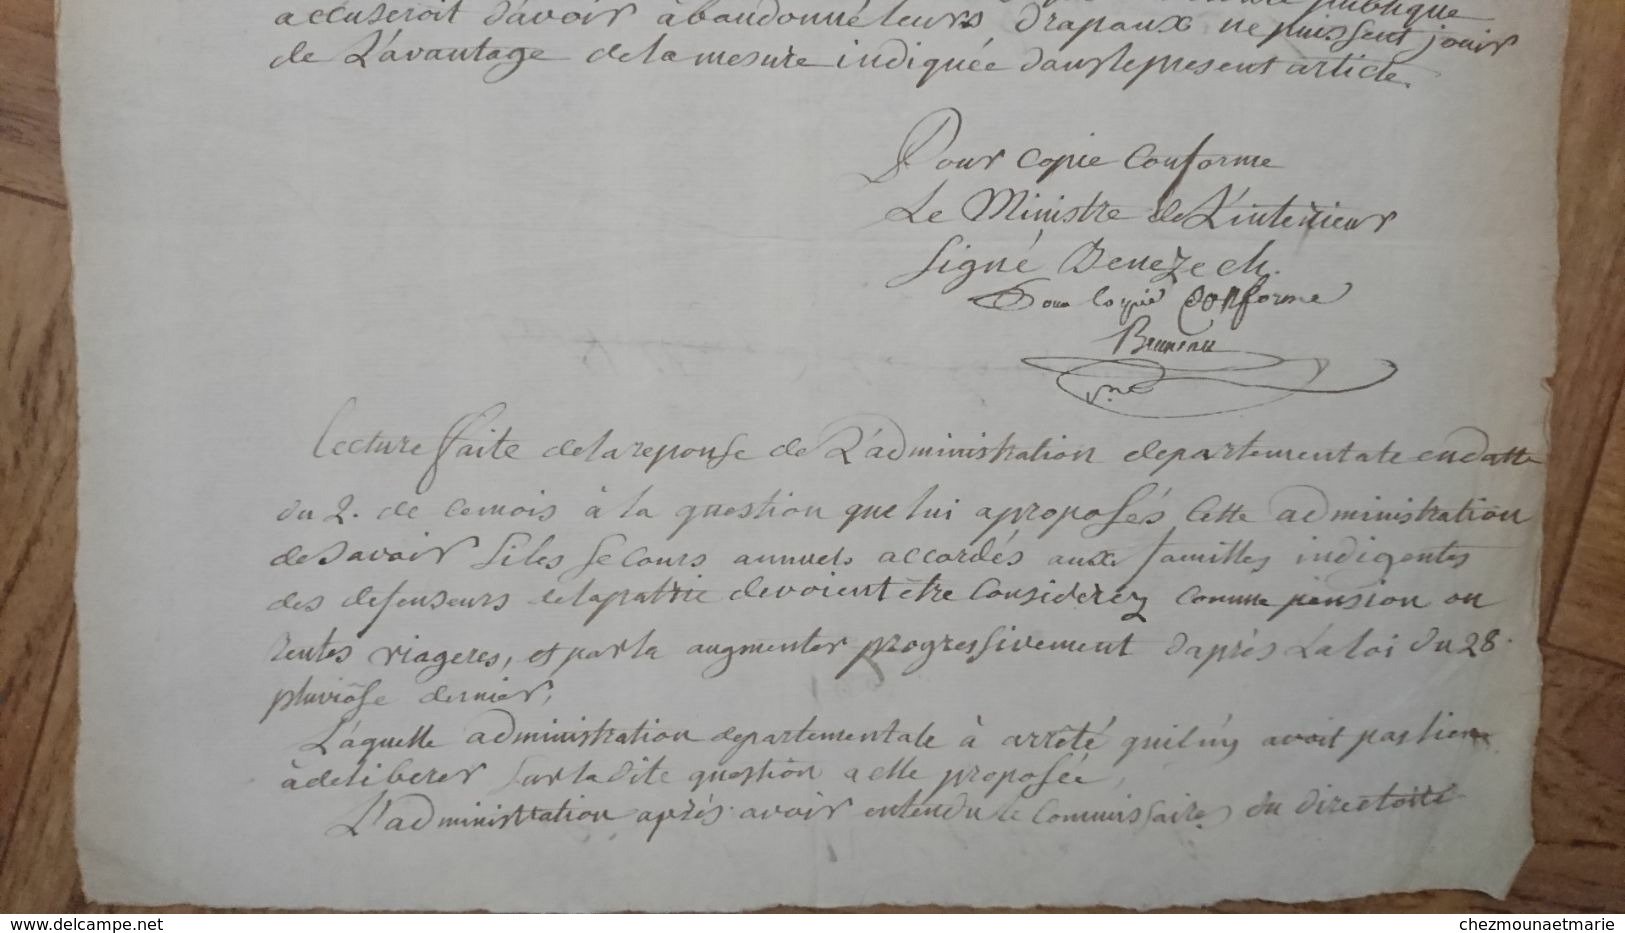 publique
accuseroit d'avoir abandonné leurs drapaux ne puissent jouir
de L'avantage de la mesure indiquée dans le present article.
Pour copie Conforme
Le Ministre de L'interieur
signé Benezech.
Pour Copie Conforme
Bruneau
Lecture faite de la reponse de L'administration departementale en datte
du 2. de ce mois à la question que lui a proposés Cette administration
de savoir si les secours annuels accordés aux familles indigentes
des defenseurs de la patrie devoient être Considerez comme pension ou
rentes viageres, et par la augmenter progressivement d'après La loi du 28.
pluviôse dernier,
Laquelle administration departementale à arrêté quil n'y avoit pas lieu
à deliberer sur la dite question a elle proposée,
L'administration après avoir entendu le Commissaires du directoire
www.delcampe.net
chezmounaetmarie